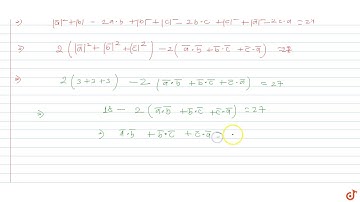 ⇒) |a|² + |b|² - 2a·b + |b|² + |c|² - 2b·c + |c|² + |a|² - 2c·a = 27
⇒) 2(|a̅|² + |b̅|² + |c̅|²) - 2(a̅·b̅ + b̅·c̅ + c̅·a̅) = 27
⇒) 2(3+3+3) - 2(a̅·b̅ + b̅·c̅ + c̅·a̅) = 27
⇒) 18 - 2(a̅·b̅ + b̅·c̅ + c̅·a̅) = 27
⇒) a̅·b̅ + b̅·c̅ + c̅·a̅ =